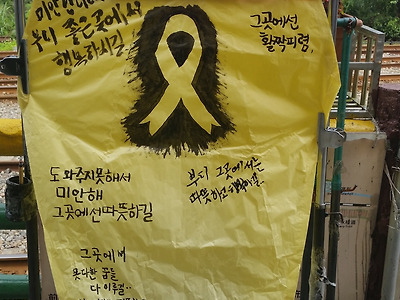 미안합니다
부디 좋은곳에서
행복하시길
그곳에선
활짝피렴,
도와주지못해서
미안해
그곳에선따뜻하길
부디 그곳에서는
따뜻하고 행복하길..
그곳에서
못다한 꿈들
다 이루길..